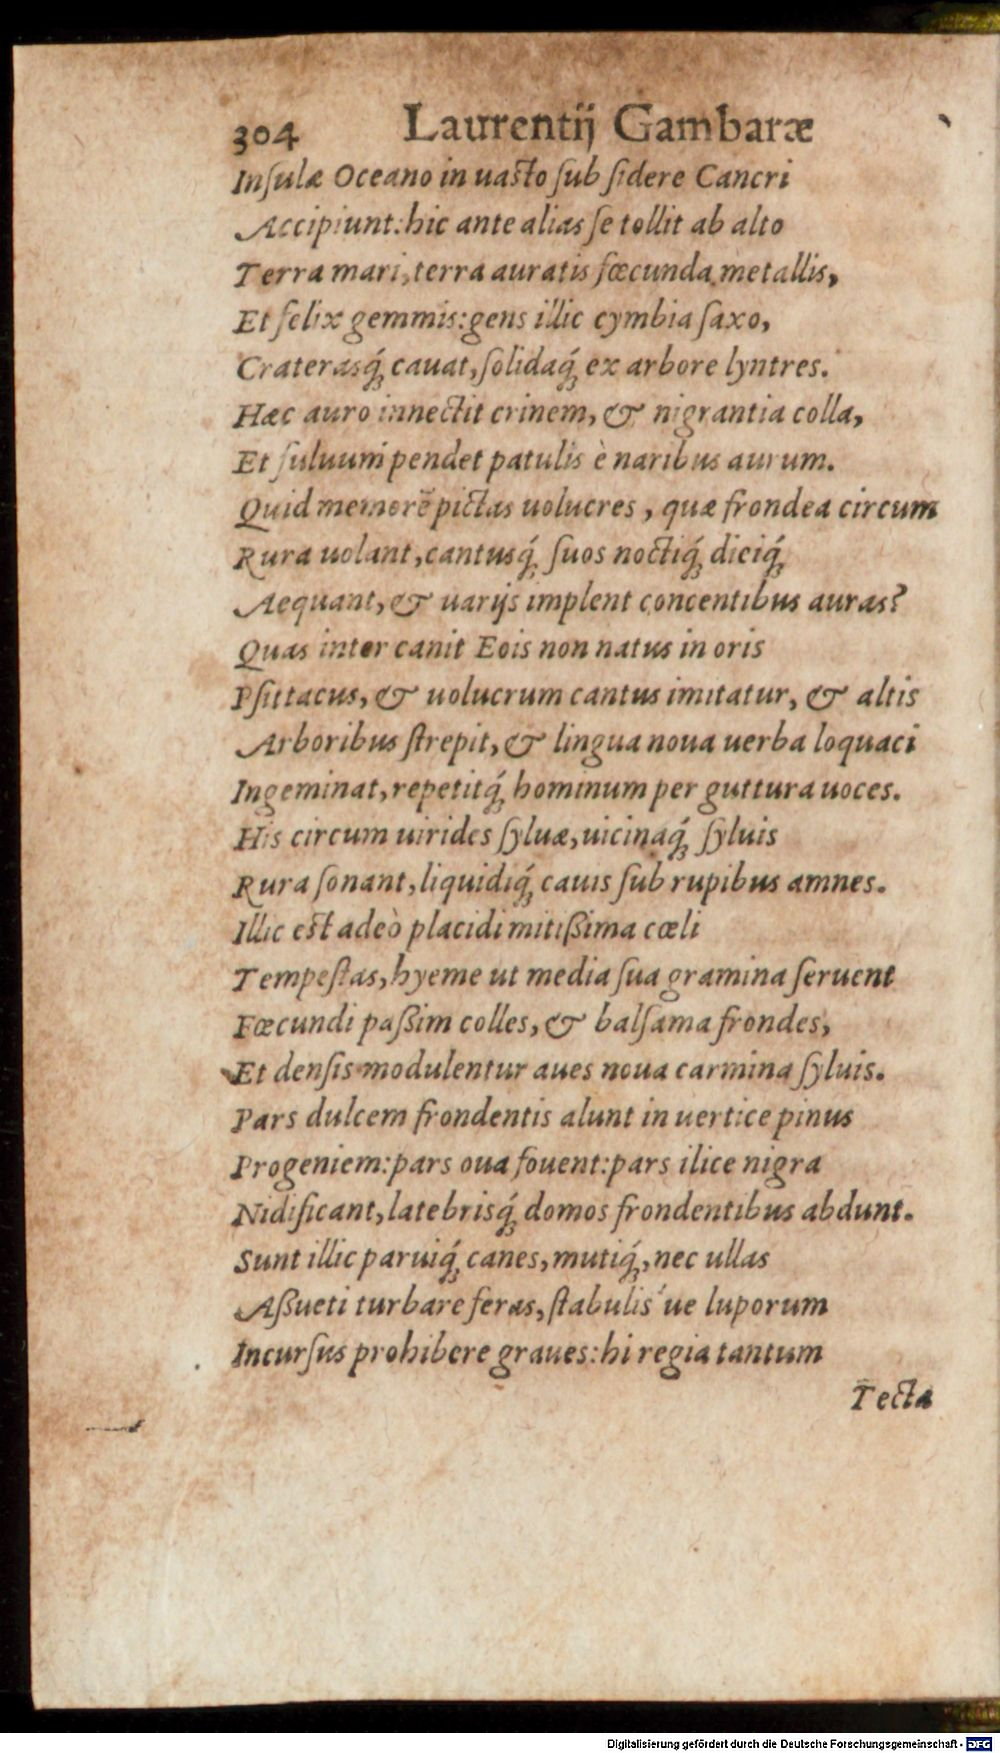 304 Laurentij Gambaræ
Insulæ Oceano in uasto sub sidere Cancri
Accipiunt: hic ante alias se tollit ab alto
Terra mari, terra auratis fœcunda metallis,
Et felix gemmis: gens illic cymbia saxo,
Craterasq́; cauat, solidaq́; ex arbore lyntres.
Hæc auro innectit crinem, & nigrantia colla,
Et fuluum pendet patulis è naribus aurum.
Quid memorẽ pictas uolucres, quæ frondea circum
Rura uolant, cantusq́; suos noctiq́; dieiq́;
Aequant, & uarijs implent concentibus auras?
Quas inter canit Eois non natus in oris
Psittacus, & uolucrum cantus imitatur, & altis
Arboribus strepit, & lingua noua uerba loquaci
Ingeminat, repetitq́; hominum per guttura uoces.
His circum uirides syluæ, uicinaq́; syluis
Rura sonant, liquidiq́; cauis sub rupibus amnes.
Illic est adeò placidi mitißima cœli
Tempestas, hyeme ut media sua gramina seruent
Fœcundi paßim colles, & balsama frondes,
Et densis modulentur aues noua carmina syluis.
Pars dulcem frondentis alunt in uertice pinus
Progeniem: pars oua fouent: pars ilice nigra
Nidificant, latebrisq́; domos frondentibus abdunt.
Sunt illic paruiq́; canes, mutiq́;, nec ullas
Aßueti turbare feras, stabulis ́ue luporum
Incursus prohibere graues: hi regia tantum
Tecta
Digitalisierung gefördert durch die Deutsche Forschungsgemeinschaft - DFG